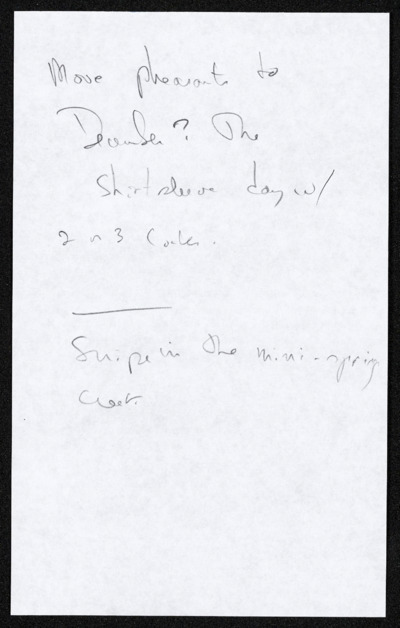 Move pheasants to
December? The
shirtsleeve day w/
2 or 3 Cocks.
Snipe in the mini-spring